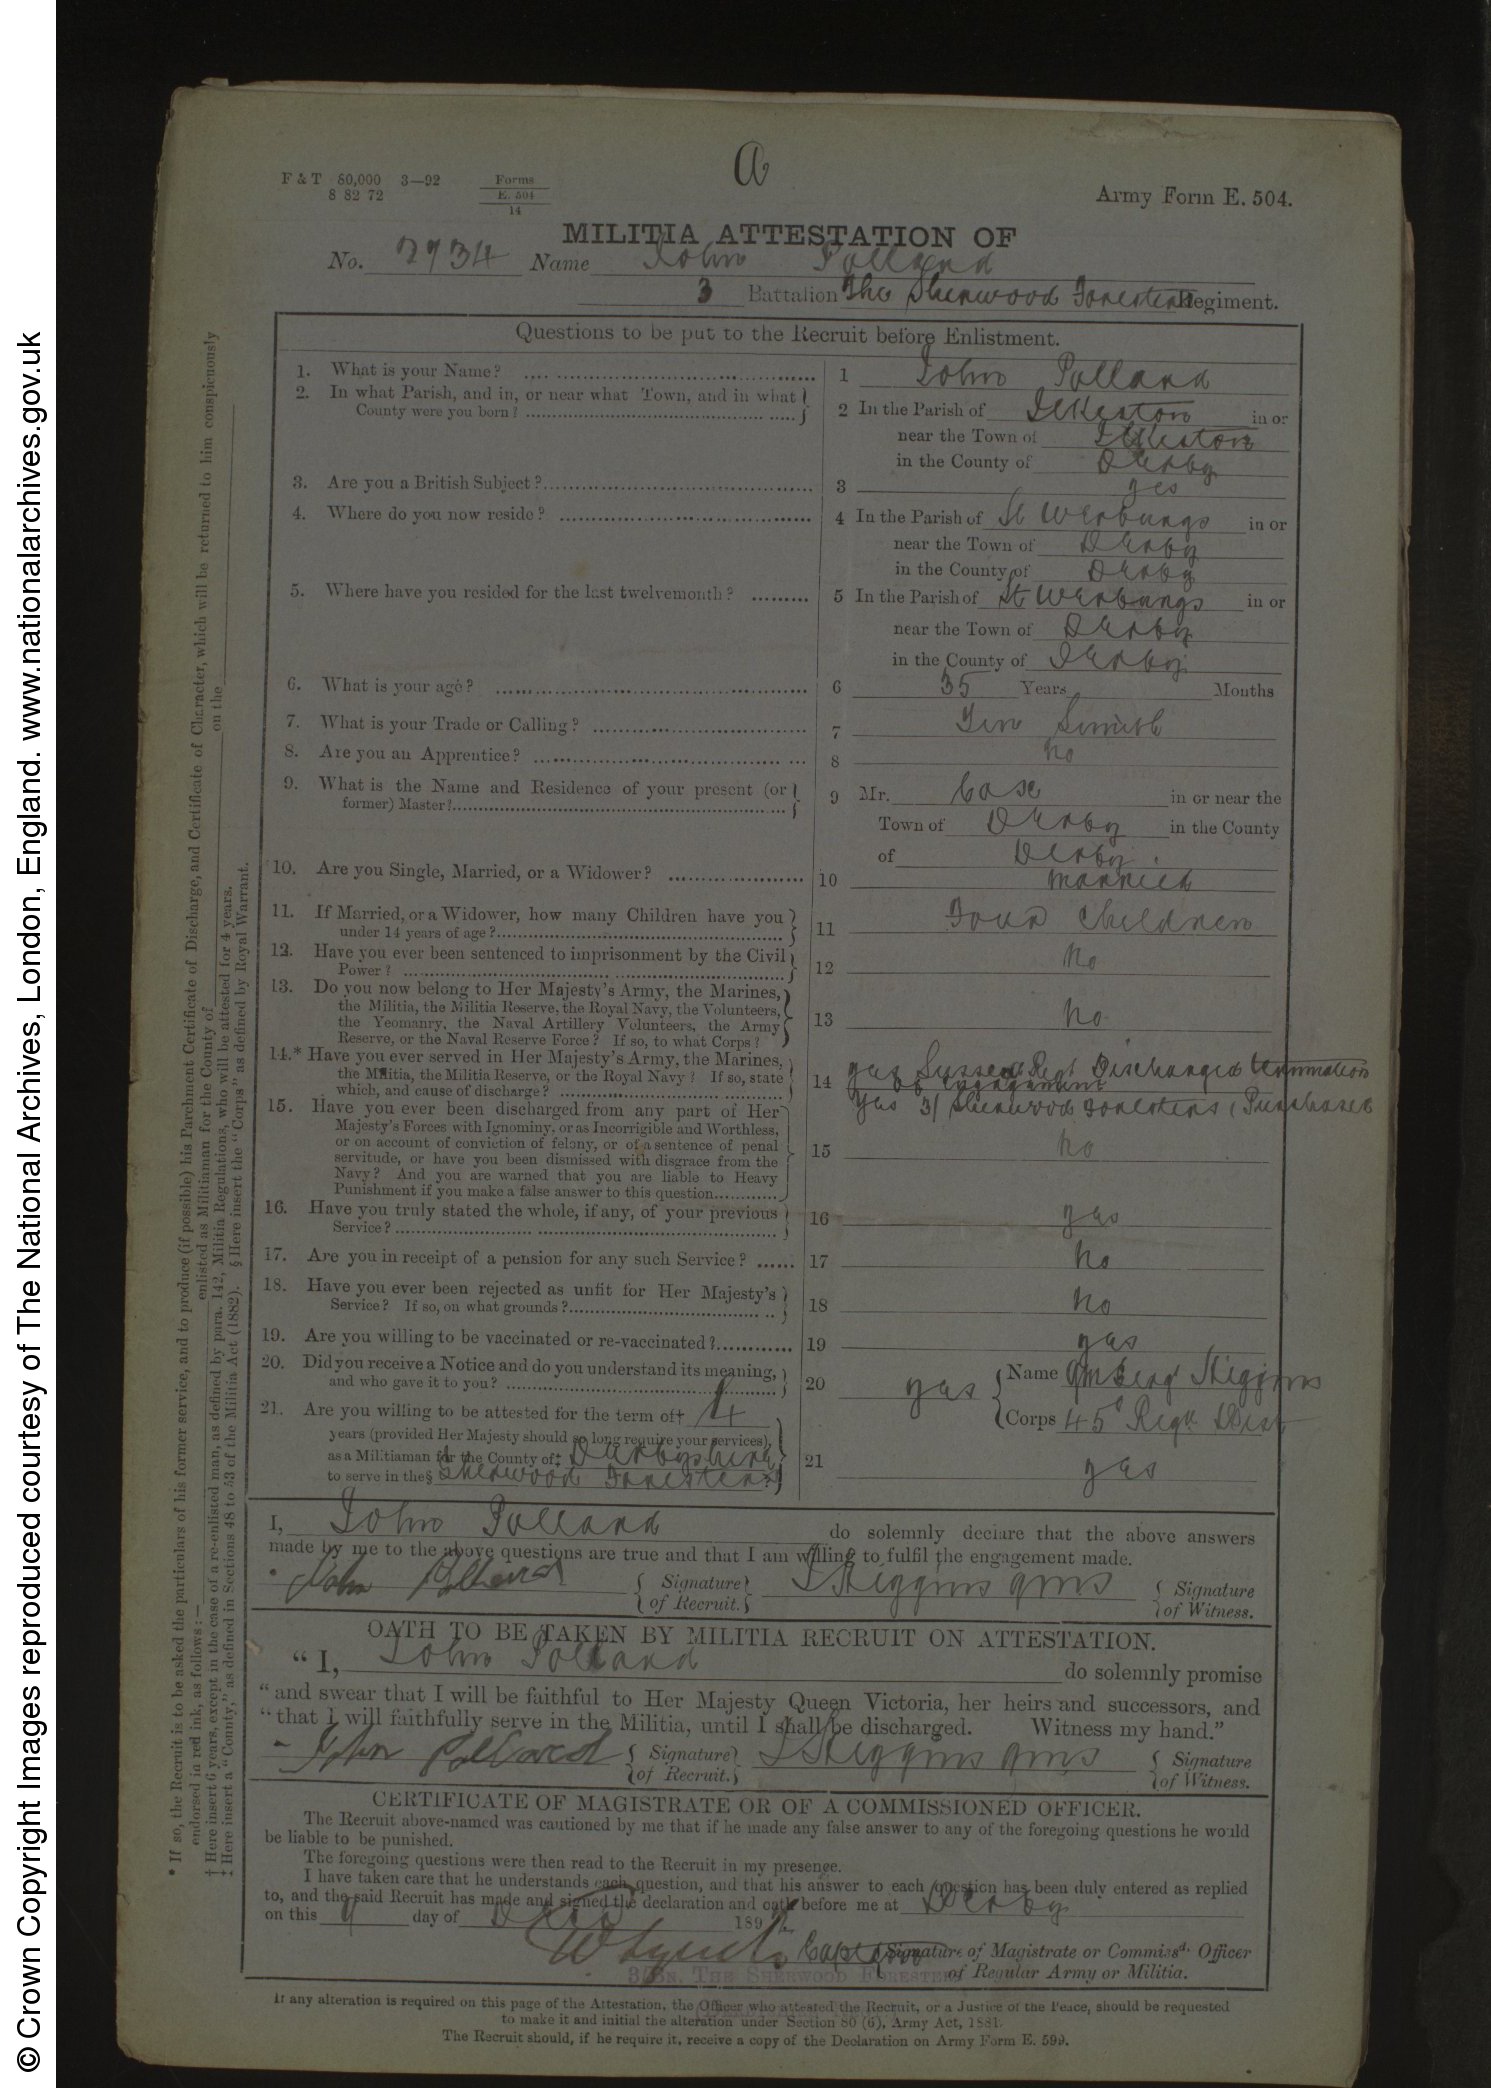 F & T 80,000 3—92
8 82 72
Forms
E. 504
14
a
Army Form E. 504.
MILITIA ATTESTATION OF
No. 2734 Name John Pollard
3 Battalion The Sherwood Foresters Regiment.
Questions to be put to the Recruit before Enlistment.
1. What is your Name? 1 John Pollard
2. In what Parish, and in, or near what Town, and in what County were you born? 2 In the Parish of Ilkeston in or
near the Town of Ilkeston
in the County of Derby
3. Are you a British Subject? 3 yes
4. Where do you now reside? 4 In the Parish of St Werburgs in or
near the Town of Derby
in the County of Derby
5. Where have you resided for the last twelvemonth? 5 In the Parish of St Werburgs in or
near the Town of Derby
in the County of Derby
6. What is your age? 6 35 Years Months
7. What is your Trade or Calling? 7 Tin Smith
8. Are you an Apprentice? 8 No
9. What is the Name and Residence of your present (or former) Master? 9 Mr. Case in or near the
Town of Derby in the County
of Derby.
10. Are you Single, Married, or a Widower? 10 Married
11. If Married, or a Widower, how many Children have you
under 14 years of age? 11 Four Children
12. Have you ever been sentenced to imprisonment by the Civil
Power? 12 No
13. Do you now belong to Her Majesty's Army, the Marines,
the Militia, the Militia Reserve, the Royal Navy, the Volunteers,
the Yeomanry, the Naval Artillery Volunteers, the Army
Reserve, or the Naval Reserve Force? If so, to what Corps? 13 No
14.* Have you ever served in Her Majesty's Army, the Marines,
the Militia, the Militia Reserve, or the Royal Navy? If so, state
which, and cause of discharge? 14 yes Sussex Regt Discharged Termination
of engagement
Yes 3/ Sherwood Foresters, Purchased
15. Have you ever been discharged from any part of Her
Majesty's Forces with Ignominy, or as Incorrigible and Worthless,
or on account of conviction of felony, or of a sentence of penal
servitude, or have you been dismissed with disgrace from the
Navy? And you are warned that you are liable to Heavy
Punishment if you make a false answer to this question. 15 No
16. Have you truly stated the whole, if any, of your previous
Service? 16 yes
17. Are you in receipt of a pension for any such Service? 17 No
18. Have you ever been rejected as unfit for Her Majesty's
Service? If so, on what grounds? 18 No
19. Are you willing to be vaccinated or re-vaccinated? 19 yes
20. Did you receive a Notice and do you understand its meaning,
and who gave it to you? 20 yes Name QmSergt Higgins
Corps 45 Regtl Dist
21. Are you willing to be attested for the term of† 4
years (provided Her Majesty should so long require your services),
as a Militiaman for the County of‡ Derbyshire
to serve in the§ Sherwood Foresters? 21 yes
I, John Pollard do solemnly declare that the above answers
made by me to the above questions are true and that I am willing to fulfil the engagement made.
John Pollard Signature of Recruit. Higgins qms Signature of Witness.
OATH TO BE TAKEN BY MILITIA RECRUIT ON ATTESTATION.
"I, John Pollard do solemnly promise
"and swear that I will be faithful to Her Majesty Queen Victoria, her heirs and successors, and
"that I will faithfully serve in the Militia, until I shall be discharged. Witness my hand."
John Pollard Signature of Recruit. Higgins qms Signature of Witness.
CERTIFICATE OF MAGISTRATE OR OF A COMMISSIONED OFFICER.
The Recruit above-named was cautioned by me that if he made any false answer to any of the foregoing questions he would
be liable to be punished.
The foregoing questions were then read to the Recruit in my presence.
I have taken care that he understands each question, and that his answer to each question has been duly entered as replied
to, and the said Recruit has made and signed the declaration and oath before me at Derby
on this 9 day of Dec 189
Capt Signature of Magistrate or Commissd. Officer
of Regular Army or Militia.
3/BN. THE SHERWOOD FORESTERS
If any alteration is required on this page of the Attestation, the Officer who attested the Recruit, or a Justice of the Peace, should be requested
to make it and initial the alteration under Section 80 (6), Army Act, 1881.
The Recruit should, if he require it, receive a copy of the Declaration on Army Form E. 599.
* If so, the Recruit is to be asked the particulars of his former service, and to produce (if possible) his Parchment Certificate of Discharge, and Certificate of Character, which will be returned to him conspicuously
endorsed in red ink, as follows:— enlisted as Militiaman for the County of on the
† Here insert 6 years, except in the case of a re-enlisted man, as defined by para. 142, Militia Regulations, who will be attested for 4 years.
‡ Here insert a "County," as defined in Sections 48 to 53 of the Militia Act (1882). § Here insert the "Corps" as defined by Royal Warrant.
© Crown Copyright Images reproduced courtesy of The National Archives, London, England. www.nationalarchives.gov.uk